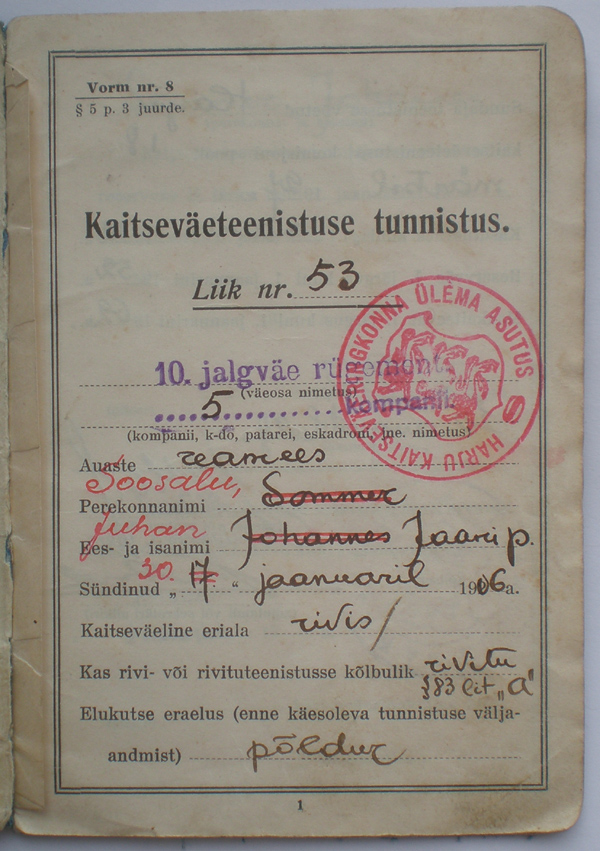 Vorm nr. 8
§ 5 p. 3 juurde.
Kaitseväeteenistuse tunnistus.
Liik nr. 53
HARJU KAITSEVÄERINGKONNA ÜLEMA ASUTUS
10. jalgväe rügement.
(väeosa nimetus)
5 kompanii
(kompanii, k-do, patarei, eskadroni, jne. nimetus)
Auaste reamees
Soosalu,
Perekonnanimi Sommer
Juhan
Ees- ja isanimi Johannes Jaani p.
30.
Sündinud „ 17 “ jaanuaril 1906 a.
Kaitseväeline eriala rivis/
Kas rivi- või rivituteenistusse kõlbulik rivitu
§83 lit „A“
Elukutse eraelus (enne käesoleva tunnistuse välja-
andmist) põldur
1